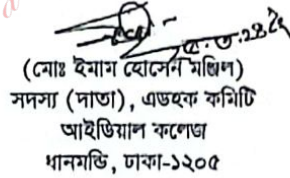 (মোঃ ইমাম হোসেন মঞ্জিল)
সদস্য (দাতা), এডহক কমিটি
আইডিয়াল কলেজ
ধানমন্ডি, ঢাকা-১২০৫